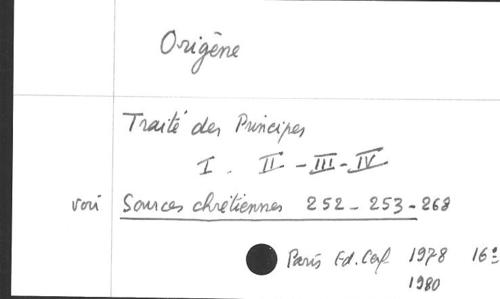 Origène
Traité des Principes
I. II - III - IV
voir Sources chrétiennes 252 - 253 - 268
Paris Ed. Cerf 1978 16º
1980